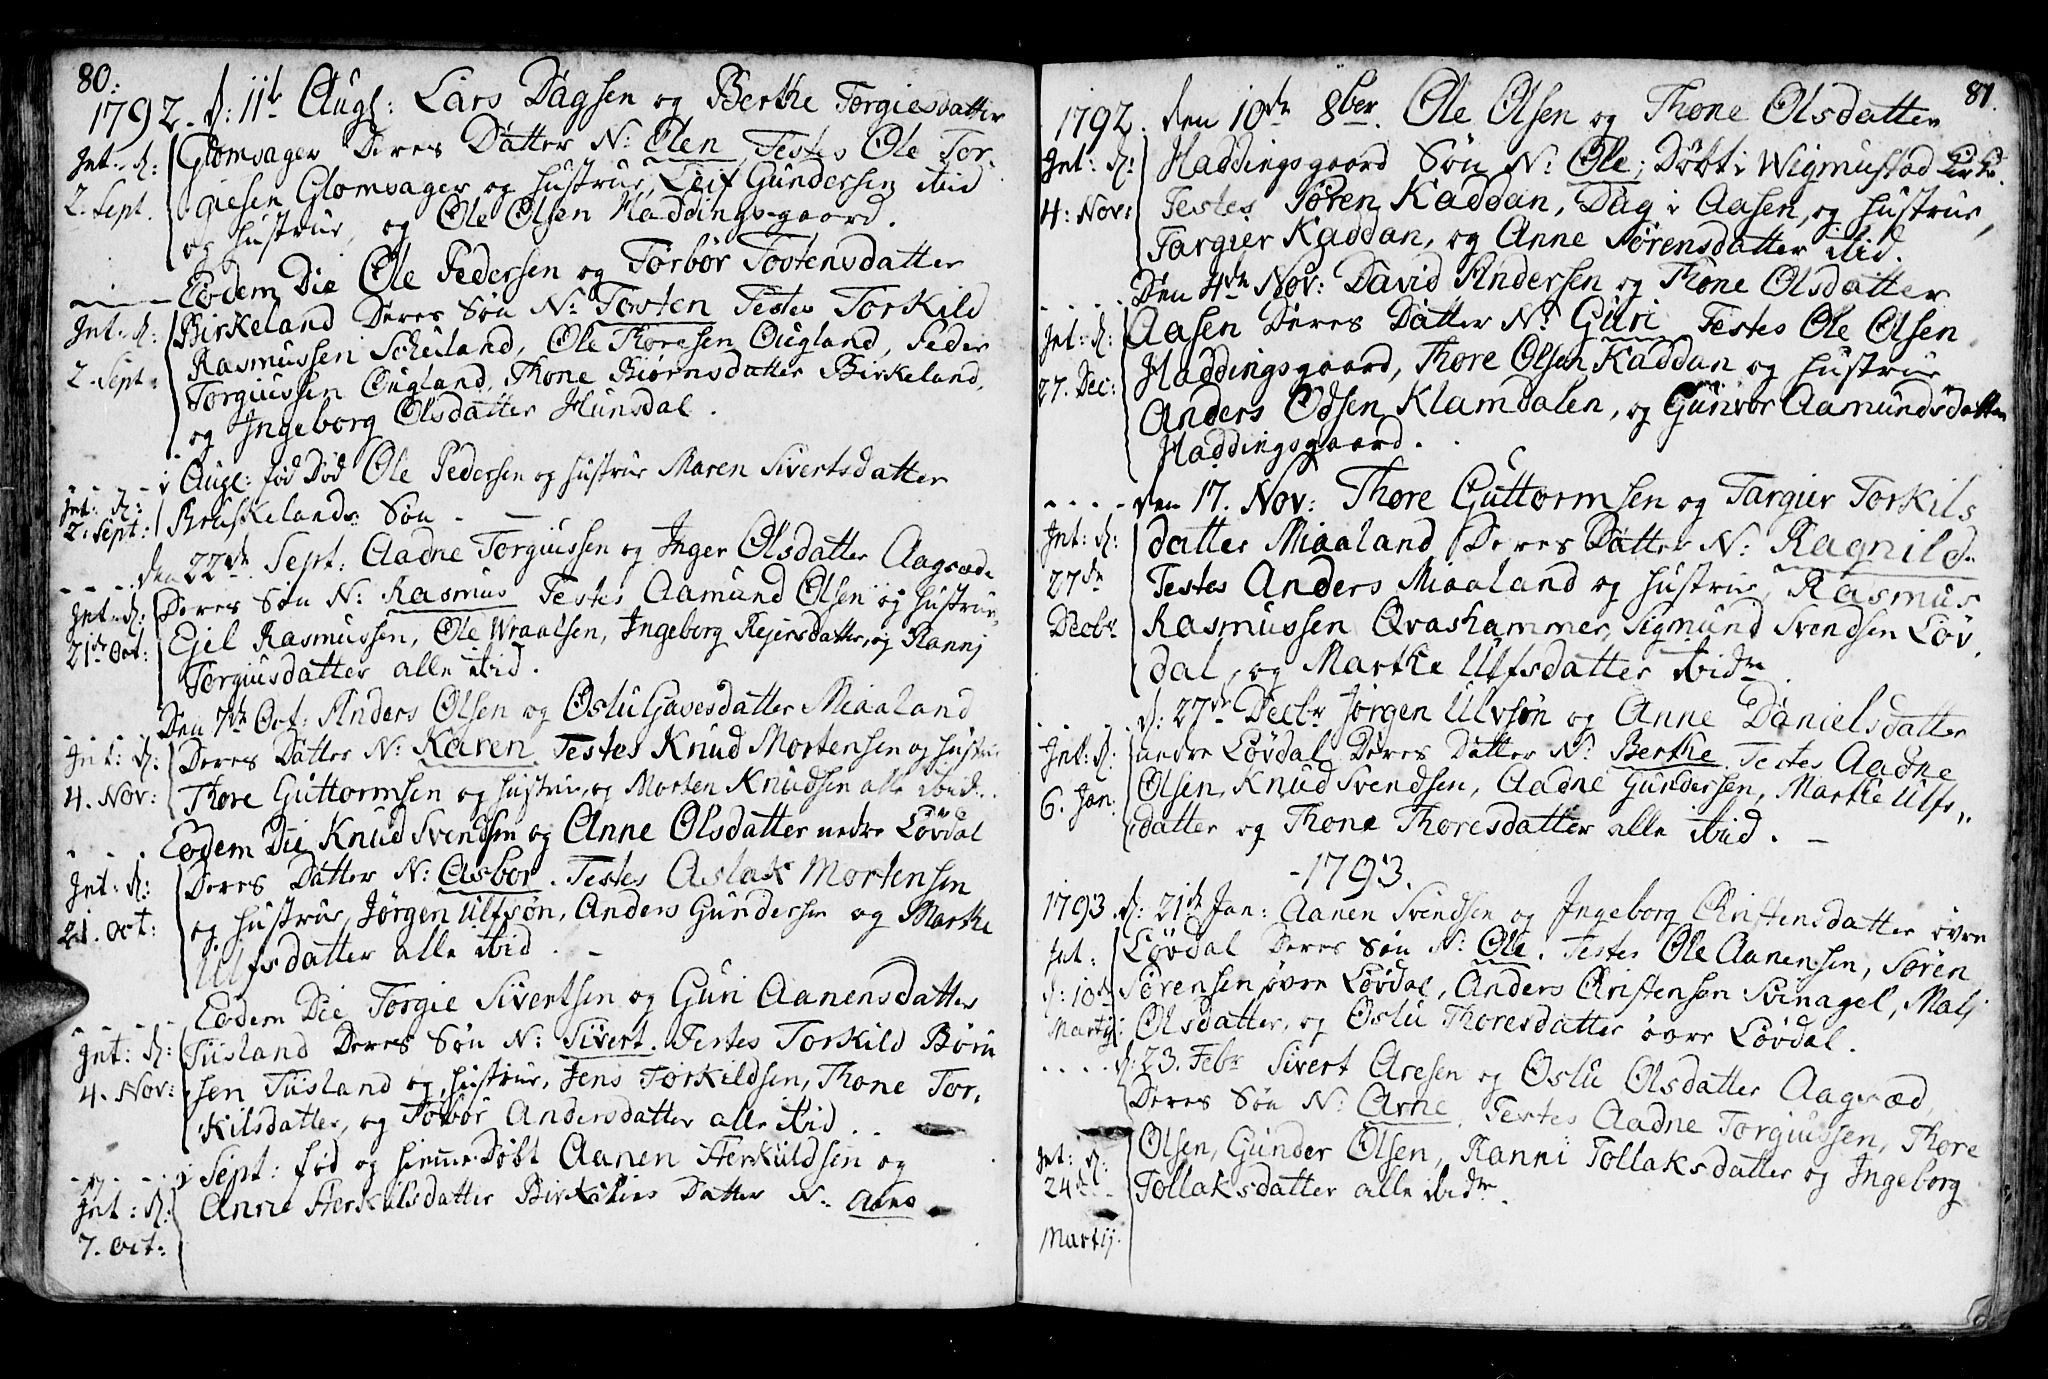 80.
1792. d: 11te Augs: Lars Dagsen og Berthe Torgiesdatter
Int: d: 2. Sept. Glomsager Deres Datter N: Elen Testes Ole Tor-
giesen Glomsager og Hustrue, Leif Gundersen ibid
og Hustrue, og Ole Olsen Haddingsgaard.
Eodem Die Ole Pedersen og Torbor Tostensdatter
Int: d: Birkeland Deres Søn N: Torsten Testes Torkild
2. Sept: Rasmussen Scheiland, Ole Thoresen Ougland, Peder
Torgiussen Ougland, Thone Biørnsdatter Birkeland,
og Ingeborg Olsdatter Hunsdal.
i Augs: fød død Ole Pedersen og Hustrue Maren Sivertsdatter
Int: d: 2. Sept: Bruskelands Søn -
den 22de Sept: Aadne Torgiussen og Inger Olsdatter Aagsæde
Int: d: Deres Søn N: Rasmus Testes Aamund Olsen og Hustrue,
21de Oct: Ejel Rasmussen, Ole Wraalsen, Ingeborg Rejersdatter, og Ranni
Torgiusdatter alle ibid.
Den 7de Oct: Anders Olsen og Oslu Gavesdatter Miaaland
Int: d: Deres Datter N: Karen Testes Knud Mortensen og Hustrue
4. Nov: Thore Guttormsen og Hustrue, og Morten Knudsen alle ibid.
Eodem Die Knud Svendsen og Anne Olsdatter nedre Løvdal
Int: d: Deres Datter N: Asbor. Testes Aslak Mortensen
21. Oct: og Hustrue, Jørgen Ulfsøn, Anders Gundersen og Marthe
Ulfsdatter alle ibid. -
Eodem Die Torgie Sivertsen og Guri Aanensdatter
Int: d: Tiisland Deres Søn N: Sivert. Testes Torkild Børu
4. Nov: sen Tiisland og Hustrue, Jens Torkildsen, Thone Tor-
kilsdatter, og Torbor Andersdatter alle ibid.
i Sept: fød og hiemedøbt Aanen Herkuldsen og
Int: d: 7. Oct: Anne Herkilsdatter Datter N:
81.
1792. den 10de 8ber. Ole Olsen og Thone Olsdatter
Int: d: Haddingsgaard Søn N: Ole; Døbt i Wigmustad Kirke.
4: Nov: Testes Søren Kaddan, Dag i Aasen, og Hustrue,
Targier Kaddan, og Anne Sørensdatter ibid.
Den 4de Nov: David Andersen og Thone Olsdatter
Int: d: Aasen Deres Datter N: Guri Testes Ole Olsen
27. Dec: Haddingsgaard, Thore Olsen Kaddan og Hustrue
Anders Odsen Klamdalen, og Gunvor Aamundsdatter
Haddingsgaard.
den 17. Nov: Thore Guttormsen og Targier Torkils
Int: d: datter Miaaland Deres Datter N: Ragnild.
27de Testes Anders Miaaland og Hustrue, Rasmus
Decbr Rasmussen Qvashammer, Sigmund Svendsen Løv
dal, og Marthe Ulfsdatter ibidm
d: 27de Decbr Jørgen Ulvsøn og Anne Danielsdatter
Int: d: nedre Løvdal Deres Datter N: Berthe. Testes Aadne
6. Jan: Olsen, Knud Svendsen, Aadne Gundersen, Marthe Ulfs-
datter og Thone Thoresdatter alle ibid. -
- 1793.
1793 d: 21de Jan: Aanen Svendsen og Ingeborg Christensdatter øvre
Int: Løvdal Deres Søn N: Ole. Testes Ole Aanensen, Søren
d: 10de Sørensen øvre Løvdal, Anders Christensen Svinagel, Malj
Martij: Olsdatter, og Oslu Thoresdatter øvre Løvdal.
d: 23. Febr Sivert Aresen og Oslu Olsdatter Aagsæd,
Deres Søn N: Arne. Testes Aadne Torgiussen, Thore
Int: d: Olsen, Gunder Olsen, Ranni Tollaksdatter og Ingeborg
24de Tollaksdatter alle ibidm.
Martij.